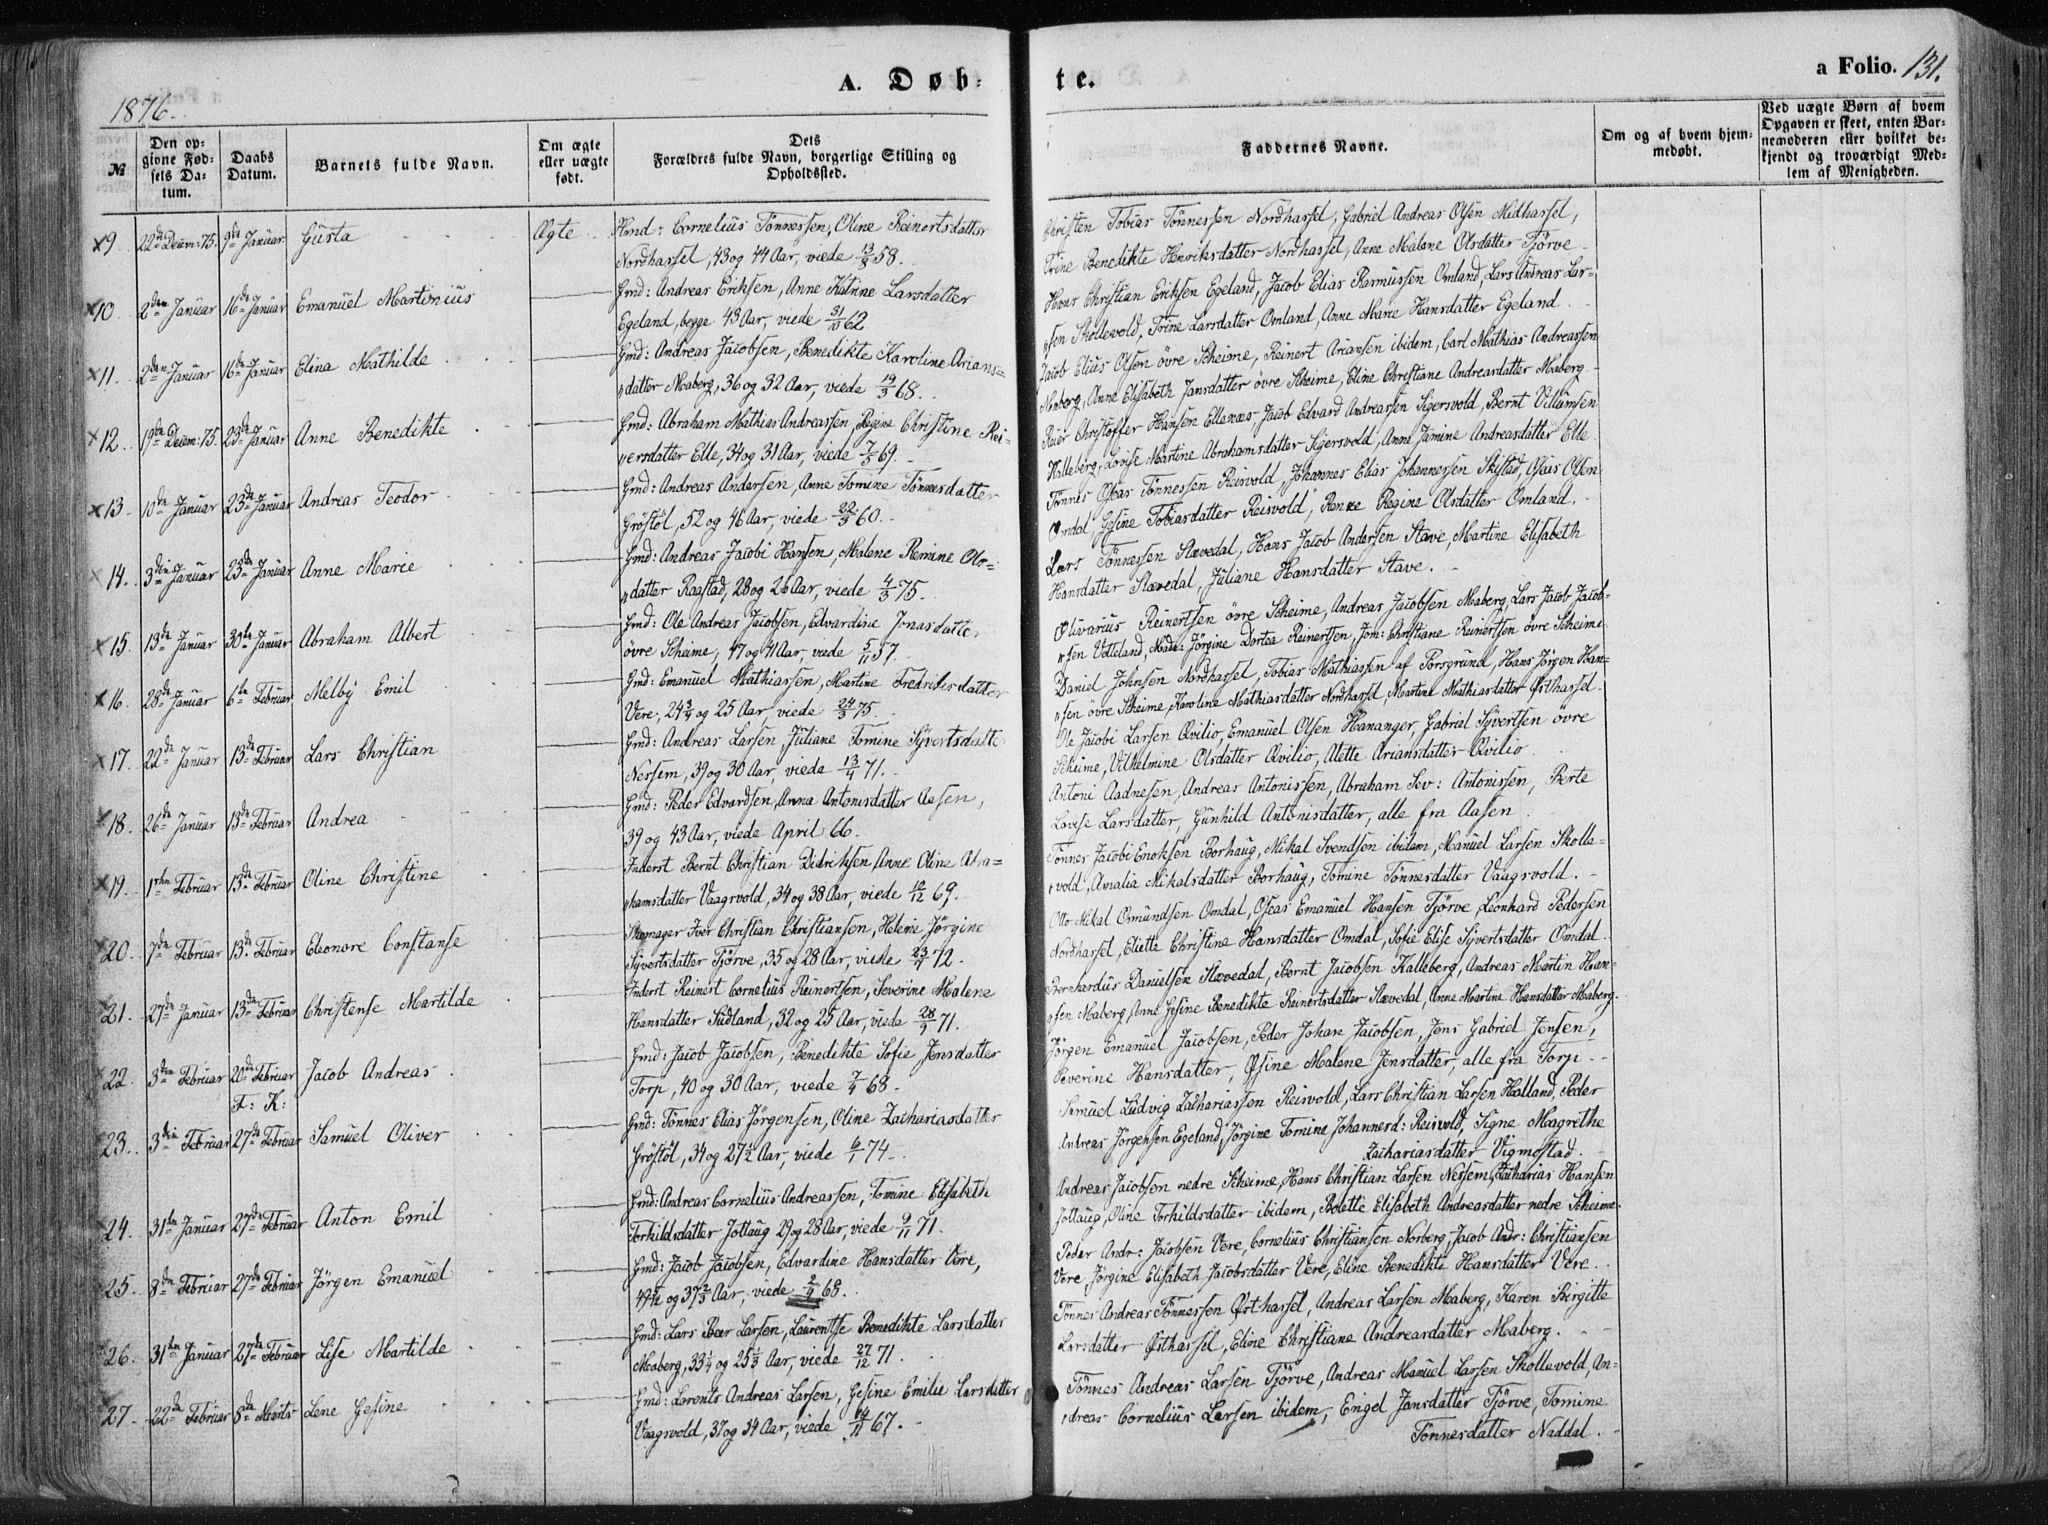 A. Døb-
te.
a Folio. 131.
1876.
№
Den op-
givne Fød-
sels Da-
tum.
Daabs
Datum.
Barnets fulde Navn.
Om ægte
eller uægte
født.
Dets
Forældres fulde Navn, borgerlige Stilling og
Opholdssted.
Faddernes Navne.
Om og af hvem hjem-
medøbt.
Ved uægte Børn af hvem
Opgaven er skeet, enten Bar-
nemoderen eller hvilket be-
kjendt og troværdigt Med-
lem af Menigheden.
9. 22de Decem: 75. 9de Januar. Gusta Ægte Hmd: Cornelius Tönnessen, Oline Reinertsdatter
Nordhassel, 43 og 44 Aar, viede 13/8 58.
Christen Tobias Tönnessen Nordhassel, Gabriel Andreas Olsen Midhassel,
Trine Benedikte Henriksdatter Nordhassel, Anne Malene Olsdatter Tjörve
10. 2den Januar 16de Januar Emanuel Martinius Gmd: Andreas Eriksen, Anne Katrine Larsdatter
Egeland, begge 43 Aar, viede 31/10 62.
Hans Christian Eriksen Egeland, Jacob Elias Rasmussen Omland, Lars Andreas Lar-
sen Skollevold, Trine Larsdatter Omland, Anne Marie Hansdatter Egeland.
11. 2den Januar 16de Januar Elina Mathilde Gmd: Andreas Jacobsen, Benedikte Karoline Arians-
datter Maberg, 36 og 32 Aar, viede 19/3 68.
Jacob Elius Olsen övre Skeime, Reinert Ariansen ibidem, Carl Mathias Andreassen
Maberg, Anne Elisabeth Jansdatter övre Skeime, Eline Christiane Andreasdatter Maberg.
12. 19de Decem: 75. 23de Januar Anne Benedikte Gmd: Abraham Mathias Andreassen, Regine Christine Rei-
ersdatter Elle, 34 og 31 Aar, viede 7/5 69.
Reier Christoffer Hansen Ellenæs, Jacob Edvard Andreassen Sigersvold, Bernt Villumsen
Kalleberg, Lovise Martine Abrahamsdatter Sigersvold, Anne Jamine Andreasdatter Elle.
13. 10de Januar 23de Januar Andreas Teodor Gmd: Andreas Andersen, Anne Tomine Tönnesdatter
Gröstöl, 52 og 46 Aar, viede 22/3 60.
Tönnes Oseas Tönnessen Reisvold, Johannes Elias Johannessen Skistad, Oseas Olsen
Omdal, Gesine Tobiasdatter Reisvold, Regine Olsdatter Omland.
14. 3den Januar 23de Januar Anne Marie Gmd: Andreas Jacobi Hansen, Malene Remine Ols-
datter Ragstad, 28 og 26 Aar, viede 4/3 75.
Lars Tönnessen Stævedal, Hans Jacob Andersen Stave, Martine Elisabeth
Hansdatter Stævedal, Juliane Hansdatter Stave.
15. 13de Januar 30te Januar Abraham Albert Gmd: Ole Andreas Jacobsen, Edvardine Jonasdatter,
övre Skeime, 47 og 41 Aar, viede 5/11 57.
Olivarius Reinertsen övre Skeime, Andreas Jacobsen Maberg, Lars Jacob Jacob-
sen Velleland, Mad: Jörgine Dortea Reinertsen, Jom: Christiane Reinertsen övre Skeime
16. 28de Januar 6te Februar Melby Emil Gmd: Emanuel Mathiassen, Martine Fredriksdatter
Vere, 24 3/4 og 25 Aar viede 24/3 75.
Daniel Johnsen Nordhassel, Tobias Mathiassen af Porsgrund, Hans Jörgen Han-
sen övre Skeime, Karoline Mathiasdatter Nordhassel, Martine Mathiasdatter Østhassel.
17. 22de Januar 13de Februar Lars Christian Gmd: Andreas Larsen, Juliane Tomine Syvertsdatter
Nessem, 39 og 30 Aar, viede 13/4 71.
Ole Jacobi Larsen Qvilio, Emanuel Olsen Hananger, Gabriel Syvertsen övre
Skeime, Vilhelmine Olsdatter Qvilio, Alette Ariansdatter Qvilio.
18. 26de Januar 13de Februar Andrea Gmd: Peder Edvardsen, Anna Antonisdatter Aasen,
39 og 43 Aar, viede April 66.
Antoni Aadnesen, Andreas Antonissen, Abraham Sev: Antonissen, Berte
Lovise Larsdatter, Gunhild Antonisdatter, alle fra Aasen.
19. 1ste Februar 13de Februar Oline Christine Inderst Bernt Christian Didriksen, Anne Oline Abra-
hamsdatter Vaagsvold, 34 og 38 Aar, viede 12/12 69.
Tönnes Jacobi Enoksen Borhaug, Mikal Svendsen ibidem, Manuel Larsen Skolle-
vold, Amalia Mikalsdatter Borhaug, Tomine Tönnesdatter Vaagsvold.
20. 7de Februar 13de Februar Eleonore Constanse Skomager Iver Christian Christiansen, Helene Jörgine
Syvertsdatter Tjörve, 35 og 28 Aar, viede 23/4 72.
Otto Mikal Omundsen Omdal, Oseas Emanuel Hansen Tjörve, Leonhard Pedersen
Nordhassel, Eliette Christine Hansdatter Omdal, Sofie Elise Syvertsdatter Omdal.
21. 27de Januar 13de Februar Christense Martilde Inderst Reinert Cornelius Reinertsen, Severine Malene
Hansdatter Sudland, 32 og 25 Aar, viede 28/4 71.
Bernhardus Danielsen Stævedal, Bernt Jacobsen Kalleberg, Andreas Martin Han-
sen Maberg, Anne Gesine Benedikte Reinertsdatter Stævedal, Anne Martine Hansdatter Maberg.
22. 3den Februar 20de Februar Jacob Andreas Gmd: Jacob Jacobsen, Benedikte Sofie Jensdatter
F: K:
Torp, 40 og 30 Aar, viede 7/4 68.
Jörgen Emanuel Jacobsen, Peder Johan Jacobsen, Jens Gabriel Jensen,
Severine Hansdatter, Osine Malene Jensdatter, alle fra Torp.
23. 3die Februar 27de Februar Samuel Oliver Gmd: Tönnes Elias Jörgensen, Oline Zachariasdatter
Gröstöl, 34 og 27 1/2 Aar, viede 6/1 74.
Samuel Ludvig Zachariassen Reisvold, Lars Christian Larsen Halland, Peder
Andreas Jörgensen Egeland, Jörgine Tomine Johannesd: Reisvold, Signe Magrethe
Zachariasdatter Vigmostad.
24. 31te Januar 27de Februar Anton Emil Gmd: Andreas Cornelius Andreassen, Tomine Elisabeth
Torkildsdatter Jöllaug 29 og 28 Aar, viede 9/11 71.
Andreas Jacobsen nedre Skeime, Hans Christian Larsen Nessem, Zacharias Hansen
Jöllaug, Oline Torkildsdatter ibidem, Bolette Elisabeth Andreasdatter nedre Skeime.
25. 8de Februar 27de Februar Jörgen Emanuel Gmd: Jacob Jacobsen, Edvardine Hansdatter Vere,
og 37 2/3 Aar, viede 2/4 68.
Peder Andr: Jacobsen Vere, Cornelius Christiansen Norberg, Jacob Andr: Christiansen
Vere, Jörgine Elisabeth Jacobsdatter Vere, Eline Benedikte Hansdatter Vere.
26. 31te Januar 27de Februar Lise Martilde Gmd: Lars Peer Larsen, Laurentse Benedikte Larsdatter
Maberg, 33 1/4 og 25 1/3 Aar, viede 27/12 71.
Tönnes Andreas Tönnessen Østhassel, Andreas Larsen Maberg, Karen Birgitte
Larsdatter Østhassel, Eline Christiane Andreasdatter Maberg.
27. 22de Februar 8de Marts Lene Gesine Gmd: Lorents Andreas Larsen, Gesine Emilie Larsdatter
Vaagsvold, 37 og 34 Aar, viede 14/11 67.
Tönnes Andreas Larsen Tjörve, Andreas Manuel Larsen Skollevold, An-
dreas Cornelius Larsen ibidem, Engel Jansdatter Tjörve, Tomine
Tönnesdatter Naddal.